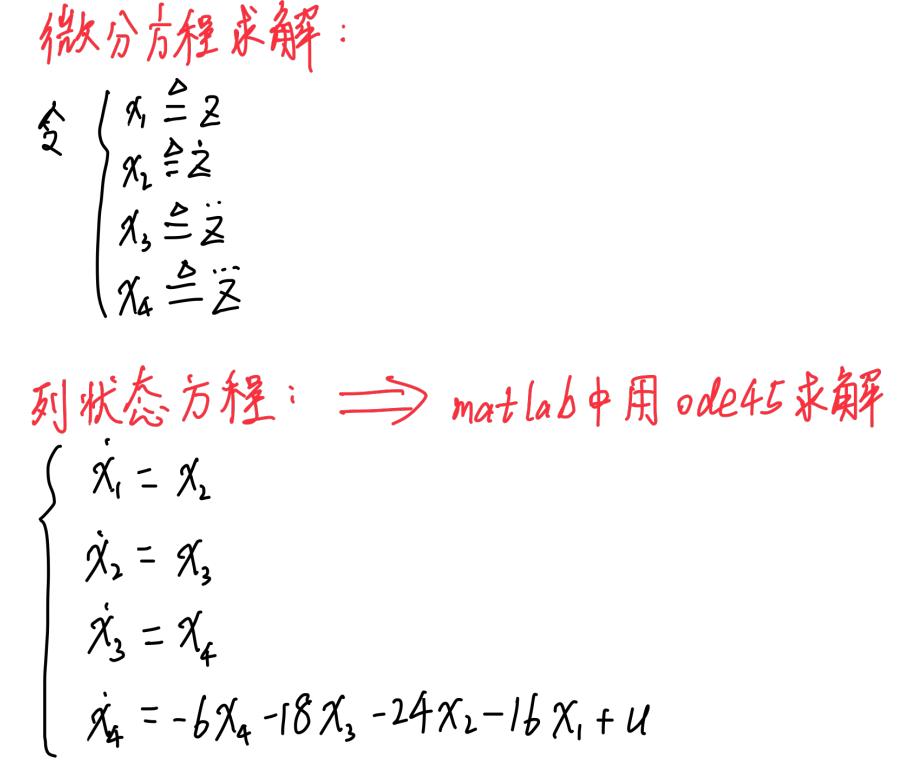 微分方程求解：
令 { x₁ ≜ z
x₂ ≜ ż
x₃ ≜ z̈
x₄ ≜ z⃛
列状态方程： ⟹ matlab中用ode45求解
{ ẋ₁ = x₂
ẋ₂ = x₃
ẋ₃ = x₄
ẋ₄ = -6x₄ -18x₃ -24x₂ -16x₁ + u